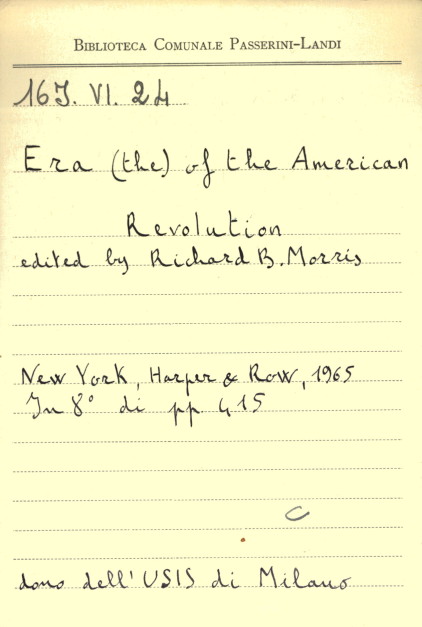 BIBLIOTECA COMUNALE PASSERINI-LANDI
16J. VI. 24
Era (the) of the American
Revolution
edited by Richard B. Morris
New York, Harper & Row, 1965
In 8° di pp 415
C
dono dell'USIS di Milano